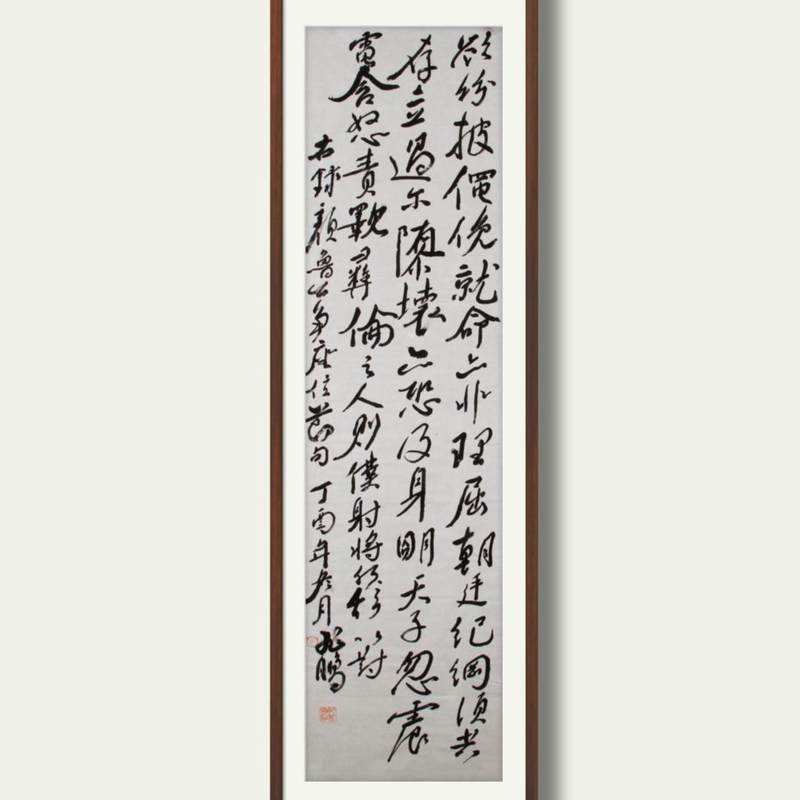 欲纷披僶俛就命亦非理屈朝廷纪綱須共
存立過尔隳壞亦恐及身明天子忽震
電含怒責斁彝倫之人則僕射將何辭以對
右録顏魯公争座位節句 丁酉年冬月 鵬